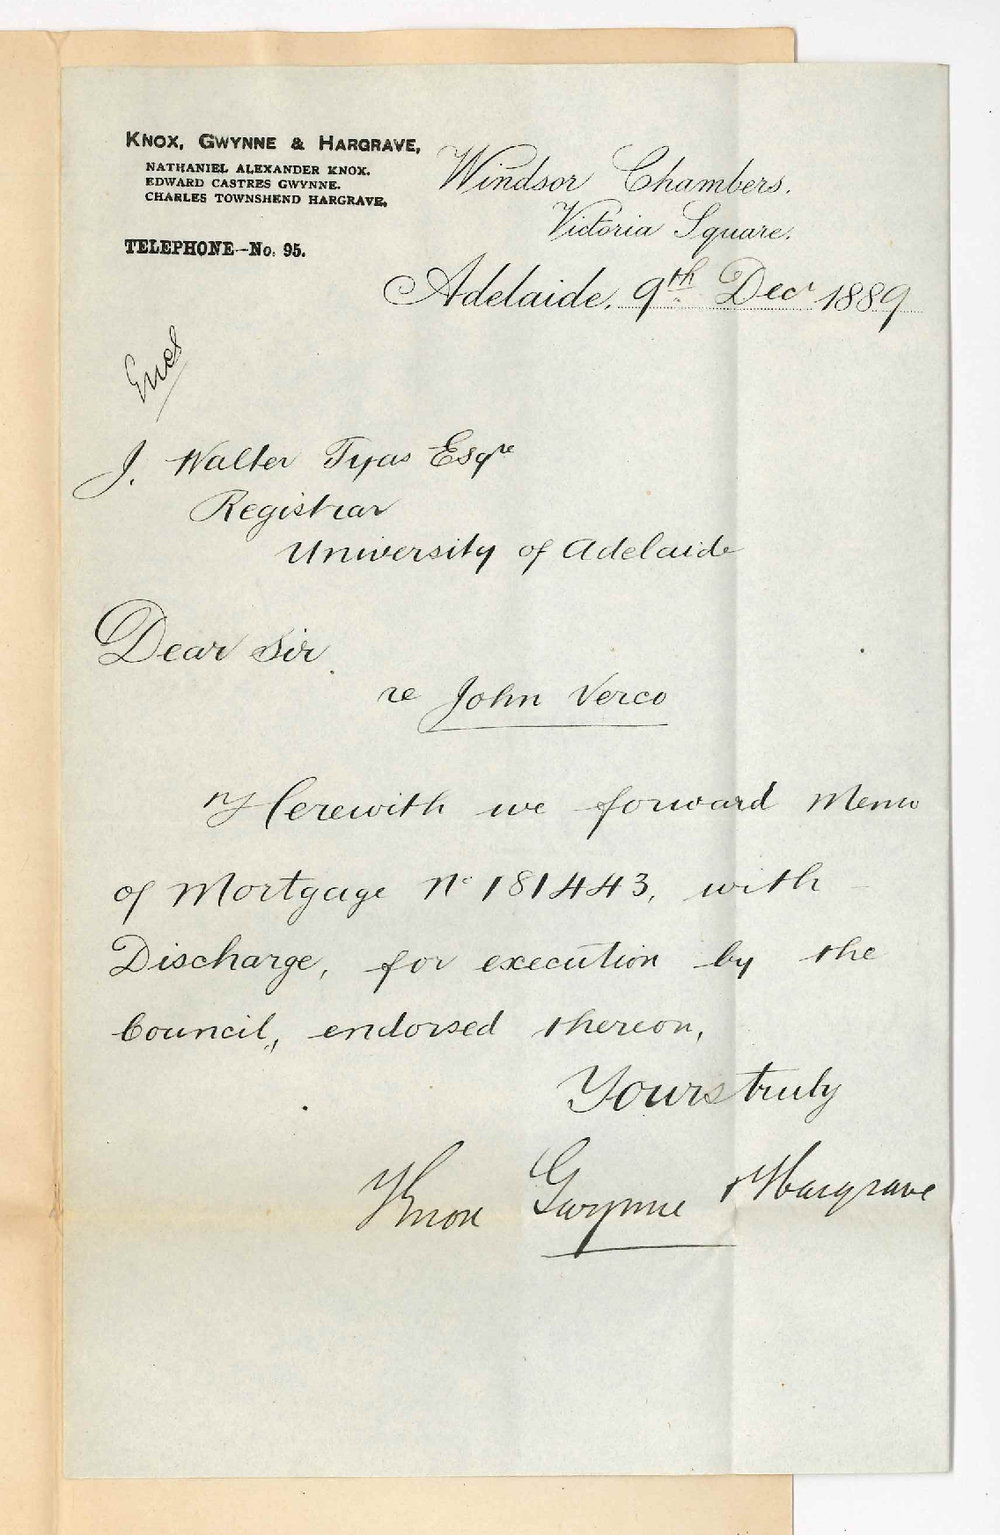 KNOX, GWYNNE & HARGRAVE,
NATHANIEL ALEXANDER KNOX.
EDWARD CASTRES GWYNNE.
CHARLES TOWNSHEND HARGRAVE.
TELEPHONE—No. 95.
Windsor Chambers.
Victoria Square.
Adelaide. 9th Decr 1889
Encl
J. Walter Tyas Esqre
Registrar
University of Adelaide
Dear Sir
re John Verco
Herewith we forward Memo
of Mortgage No 181443, with
Discharge, for execution by the
Council, endorsed thereon,
Yours truly
Knox Gwynne & Hargrave